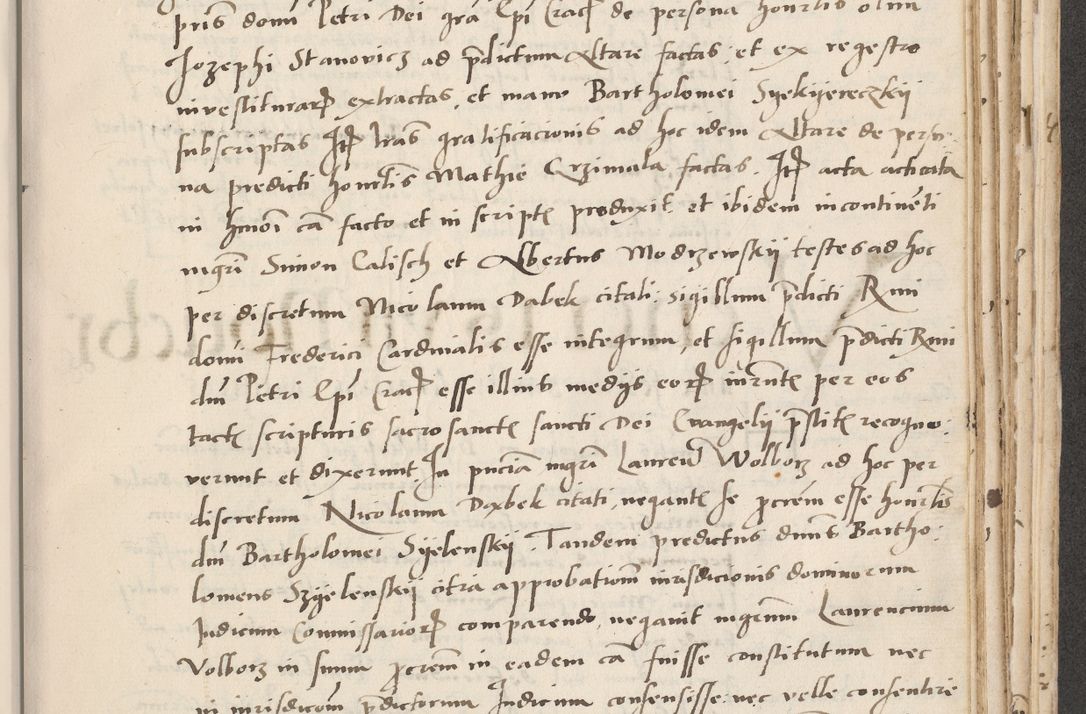 pris domi Petri Dei gra Epi Crac de persona honrlis olim
Jozephi Stanovicz ad pdictum Altare factas, et ex regestro
investiturar extractas, et manu Bartholomei Syekyereczkij
subscriptas Itp lras gratificacionis ad hoc idem Altare de perso-
na predicti honrlis Mathie Crzimala factas. Itp acta acticata
in hmoi ca facto et in script produxit. et ibidem incontinenti
mgri Simon Calisch et Albertus Modrzewskij testes ad hoc
per discretum Nicolaum Dabek citati. sigillum pdicti Rmi
domi Frederici Cardinalis esse integrum, et sigillum pdicti Rmi
dni Petri Epi Crac esse illius mediis eor iurnt per eos
tact scripturis sacrosanct sancti Dei Evangelij pstit recogno-
verunt et dixerunt. In pncia mgri Laurenti Wolborz ad hoc per
discretum Nicolaum Dabek citati, negant se pcrem esse honrlis
dni Bartholomei Syelenskij. Tandem predictus dnus Bartho-
lomeus Szyelenskij citra approbationi iurisdicionis dominorum
Judicum Commissarior comparendo, negavit mgrum Laurencium
Volborz in suum pcrem in eadem ca fuisse constitutum nec
in iurisdicom pdictorum Judicum consensisse nec velle consentire